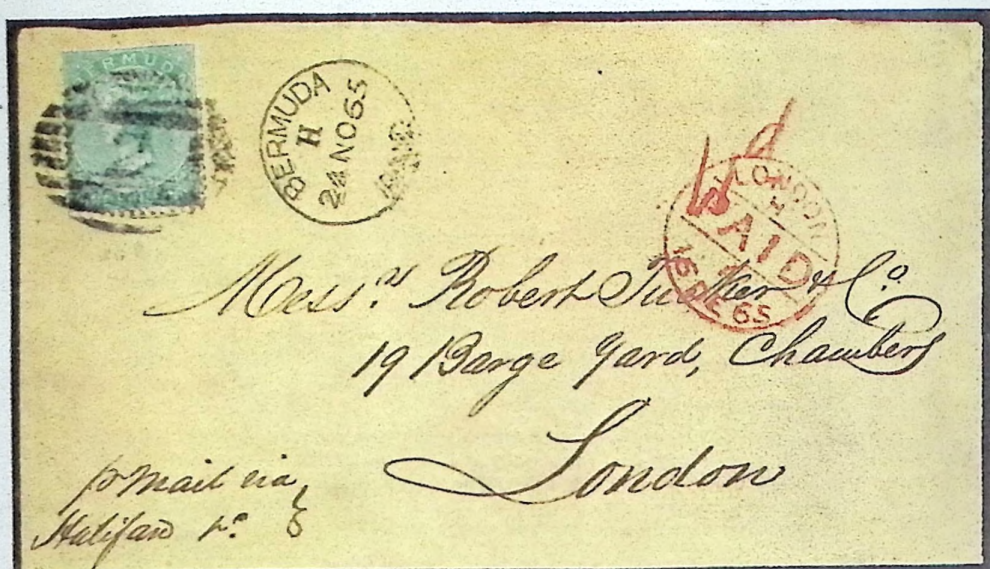 BERMUDA
BERMUDA
H
24 NO 65
PAID
1d
LONDON
H
PAID
16 DE 65
Mess.rs Robert Tucker & Co.
19 Barge Yard, Chambers
London
p Mail via
Halifax